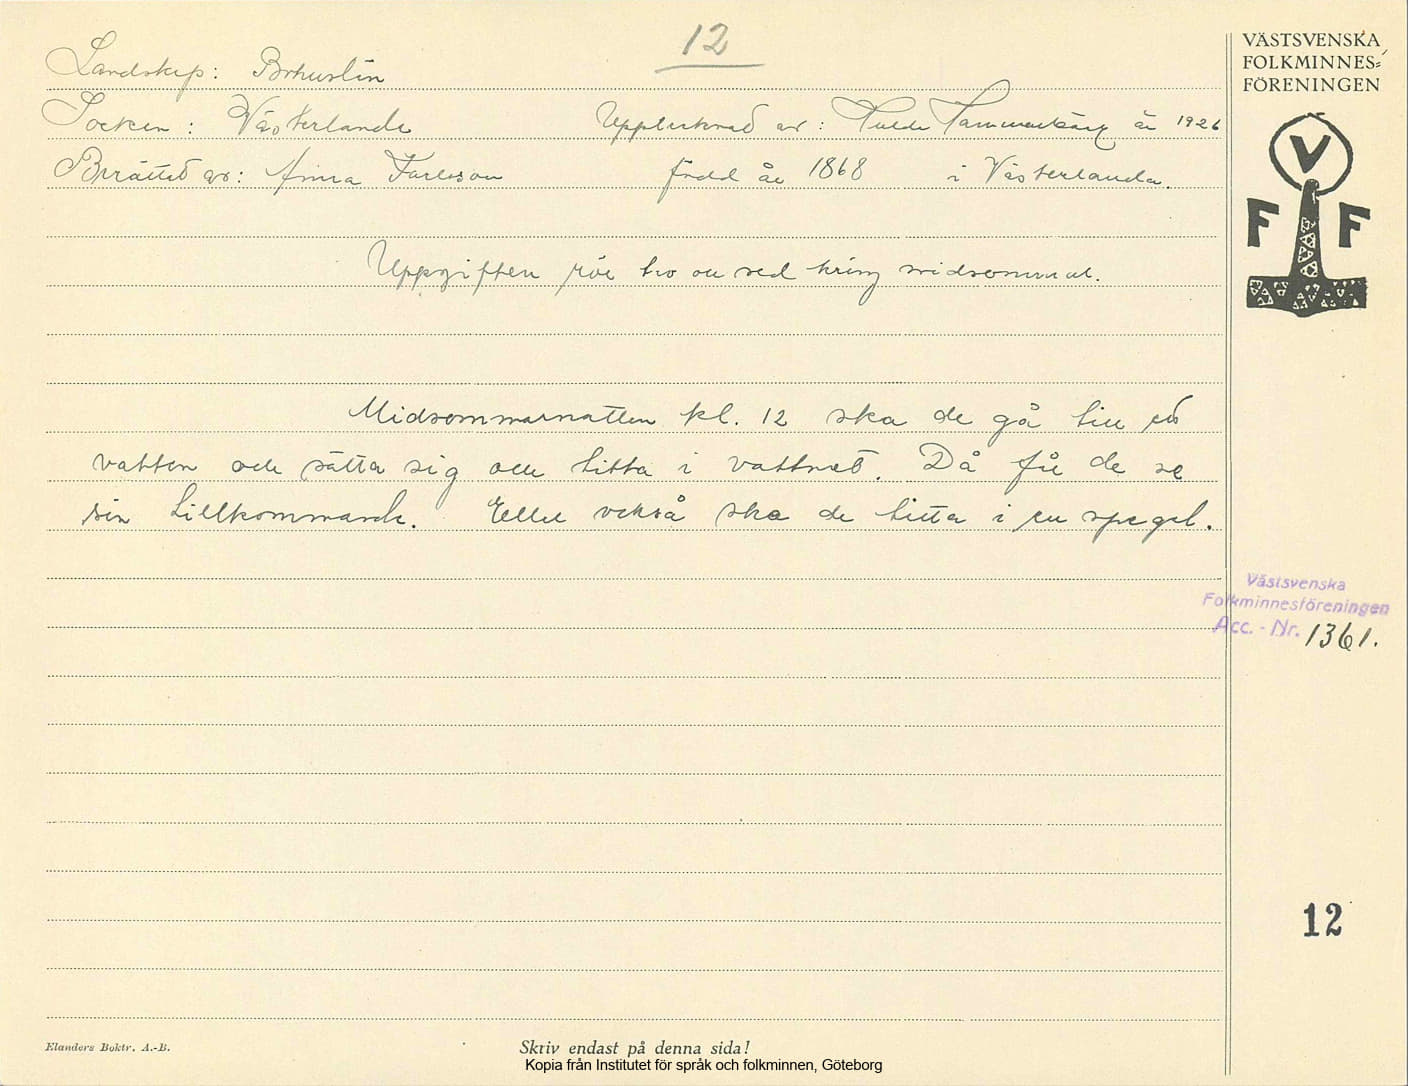 12
Landskap: Bohuslän
Socken: Västerlanda Upptecknad av: Hammarberg år 1926
Berättat av: Anna Karlsson född år 1868 i Västerlanda.
Uppgiften rör tro och sed kring midsommar.
Midsommarnatten kl. 12 ska de gå till ett
vatten och sätta sig och titta i vattnet. Då får de se
sin tillkommande. Eller också ska de titta i en spegel.
VÄSTSVENSKA
FOLKMINNES-
FÖRENINGEN
V
F F
Västsvenska
Folkminnesföreningen
Acc. - Nr. 1361.
12
Elanders Boktr. A.-B.
Skriv endast på denna sida!
Kopia från Institutet för språk och folkminnen, Göteborg